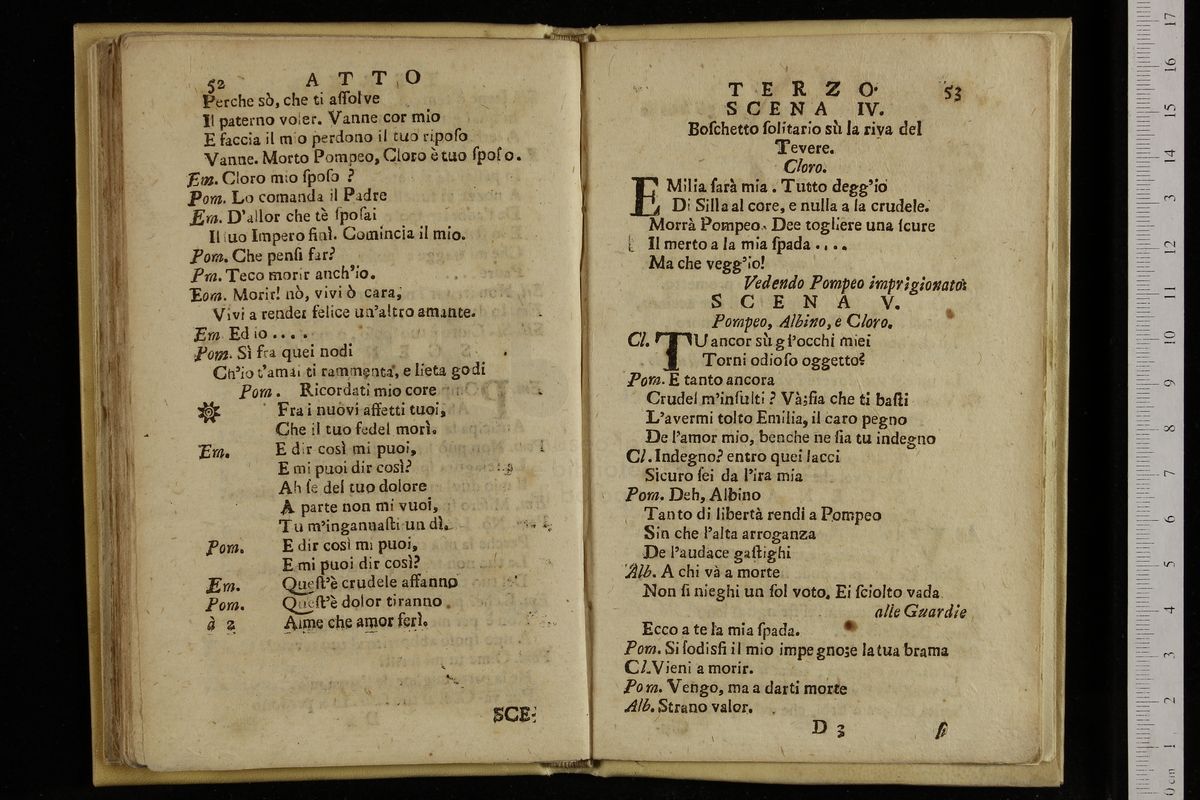 52 A T T O
Perche sò, che ti aſſolve
Il paterno voler. Vanne cor mio
E faccia il mio perdono il tuo ripoſo
Vanne. Morto Pompeo, Cloro è tuo ſpoſo.
Em. Cloro mio ſpoſo ?
Pom. Lo comanda il Padre
Em. D'allor che tè ſpoſai
Il ſuo Impero finì. Comincia il mio.
Pom. Che penſi far?
Pm. Teco morir anch'io.
Eom. Morir! nò, vivi ò cara,
Vivi a render felice un'altro amante.
Em Ed io . . . .
Pom. Sì fra quei nodi
Ch'io t'amai ti rammenta, e lieta godi
Pom. Ricordati mio core
Fra i nuovi affetti tuoi,
Che il tuo fedel morì.
Em. E dir così mi puoi,
E mi puoi dir così?
Ah ſe del tuo dolore
A parte non mi vuoi,
Tu m'ingannaſti un dì.
Pom. E dir così mi puoi,
E mi puoi dir così?
Em. Queſt'è crudele affanno
Pom. Queſt'è dolor tiranno
à 2 Aime che amor ferì.
SCE-
T E R Z O. 53
S C E N A IV.
Boſchetto ſolitario sù la riva del
Tevere.
Cloro.
EMilia ſarà mia . Tutto degg'io
Di Silla al core, e nulla a la crudele.
Morrà Pompeo. Dee togliere una ſcure
Il merto a la mia ſpada . . . .
Ma che vegg'io!
Vedendo Pompeo imprigionato.
S C E N A V.
Pompeo, Albino, e Cloro.
Cl. TU ancor sù gl'occhi miei
Torni odioſo oggetto?
Pom. E tanto ancora
Crudel m'inſulti ? Và;ſia che ti baſti
L'avermi tolto Emilia, il caro pegno
De l'amor mio, benche ne ſia tu indegno
Cl. Indegno? entro quei lacci
Sicuro ſei da l'ira mia
Pom. Deh, Albino
Tanto di libertà rendi a Pompeo
Sin che l'alta arroganza
De l'audace gaſtighi
Alb. A chi và a morte
Non ſi nieghi un ſol voto. Ei ſciolto vada
alle Guardie
Ecco a te la mia ſpada.
Pom. Si ſodisfi il mio impegno;e la tua brama
Cl. Vieni a morir.
Pom. Vengo, ma a darti morte
Alb. Strano valor.
D 3